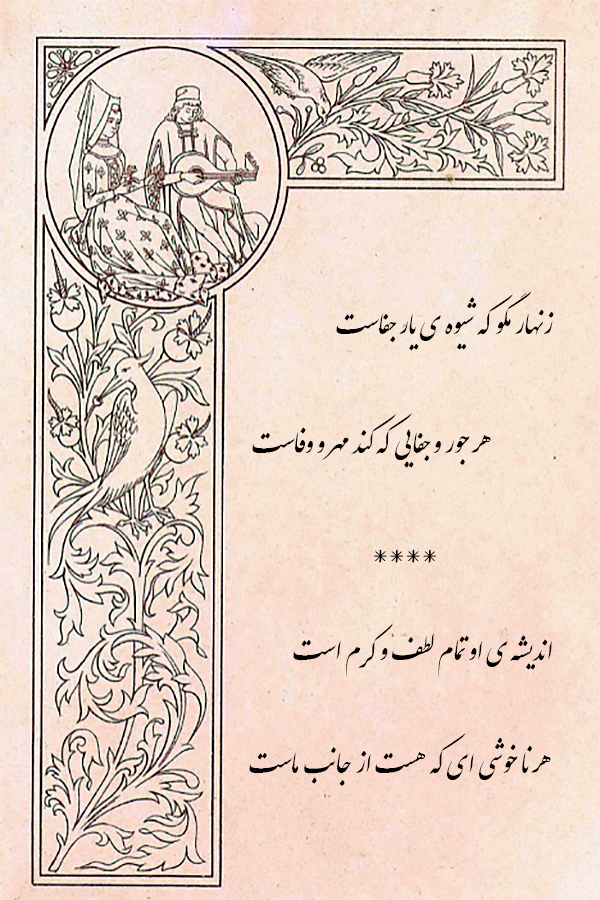 زنهار مگو که شیوه ی یار جفاست
هر جور و جفایی که کند مهر و وفاست
****
اندیشه ی او تمام لطف و کرم است
هر ناخوشی ای که هست از جانب ماست